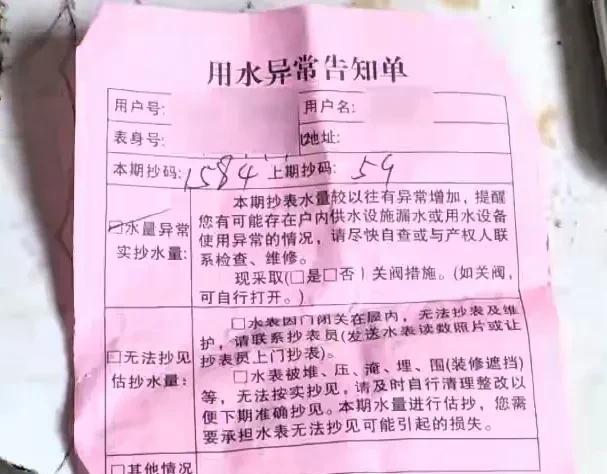 用水异常告知单
用户号: 用户名:
表身号: 地址:
本期抄码: 1584 上期抄码: 59
☑水量异常
实抄水量:
本期抄表水量较以往有异常增加，提醒
您有可能存在户内供水设施漏水或用水设备
使用异常的情况，请尽快自查或与产权人联
系检查、维修。
现采取(□是□否)关阀措施。(如关阀，
可自行打开。)
□无法抄见
估抄水量:
□水表因门闭关在屋内，无法抄表及维
护，请联系抄表员(发送水表读数照片或让
抄表员上门抄表)。
□水表被堆、压、掩、埋、围(装修遮挡)
等，无法按实抄见，请及时自行清理整改以
便下期准确抄见。本期水量进行估抄，您需
要承担水表无法抄见可能引起的损失。
□其他情况